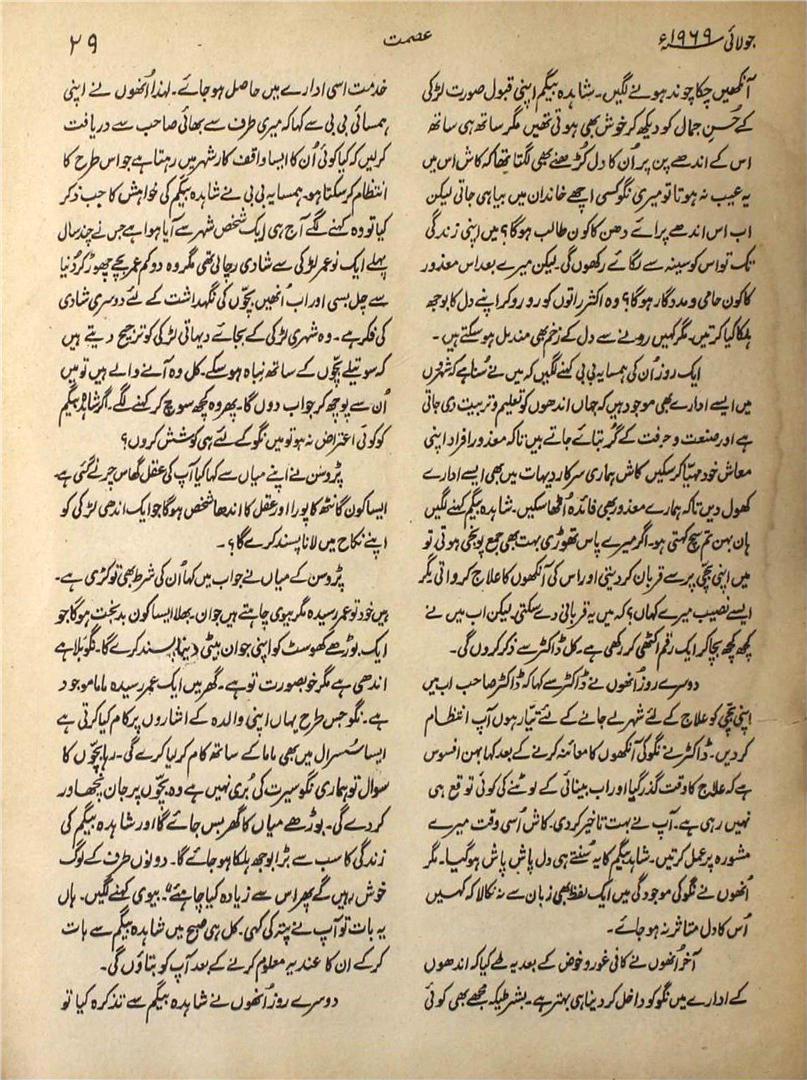 جولائی ۱۹۶۹ء
عصمت
۲۹
آنکھیں چکا چوند ہونے لگیں۔ شاہدہ بیگم اپنی قبول صورت لڑکی
کے حُسنِ جمال کو دیکھ کر خوش بھی ہوتی تھیں مگر ساتھ ہی ساتھ
اس کے اندھے پن پر اُن کا دل کُڑھنے بھی لگتا تھا کہ کاش اس میں
یہ عیب نہ ہوتا تو میری نگو کسی اچھے خاندان میں بیاہی جاتی لیکن
اب اس اندھے پرائے دھن کا کون طالب ہوگا؟ میں اپنی زندگی
تک تو اس کو سینہ سے لگائے رکھوں گی۔ لیکن میرے بعد اس معذور
کا کون حامی و مددگار ہوگا؟ وہ اکثر راتوں کو رو رو کر اپنے دل کا بوجھ
ہلکا کیا کرتیں۔ مگر کہیں رونے سے دل کے زخم بھی مندمل ہو سکتے ہیں۔
ایک روز اُن کی ہمسایہ بی بی کہنے لگیں کہ میں نے سُنا ہے کہ شہروں
میں ایسے ادارے بھی موجود ہیں کہ جہاں اندھوں کو تعلیم و تربیت دی جاتی
ہے اور صنعت و حرفت کے گُر بتائے جاتے ہیں تاکہ معذور افراد اپنی
معاش خود مہیّا کر سکیں کاش ہماری سرکار دیہات میں بھی ایسے ادارے
کھول دیں تاکہ ہمارے معذور بھی فائدہ اُٹھا سکیں۔ شاہدہ بیگم کہنے لگیں
ہاں بہن تم سچ کہتی ہو۔ اگر میرے پاس تھوڑی بہت بھی جمع پونجی ہوتی تو
میں اپنی بچّی پر سے قربان کر دیتی اور اس کی آنکھوں کا علاج کرواتی مگر
ایسے نصیب میرے کہاں؟ کہ میں یہ قربانی دے سکتی۔ لیکن اب میں نے
کچھ کچھ بچا کر ایک رقم اکٹھی کر رکھی ہے۔ کل ڈاکٹر سے ذکر کروں گی۔
دوسرے روز اُنھوں نے ڈاکٹر سے کہا کہ ڈاکٹر صاحب اب میں
اپنی بچّی کو علاج کے لئے شہر لے جانے کے لئے تیار ہوں آپ انتظام
کر دیں۔ ڈاکٹر نے نگو کی آنکھوں کا معائنہ کرنے کے بعد کہا بہن افسوس
ہے کہ علاج کا وقت گذر گیا اور اب بینائی کے لوٹنے کی کوئی توقع ہی
نہیں رہی ہے۔ آپ نے بہت تاخیر کر دی۔ کاش اُسی وقت میرے
مشورہ پر عمل کرتیں۔ شاہدہ بیگم کا یہ سُنتے ہی دل پاش پاش ہو گیا۔ مگر
اُنھوں نے نگو کی موجودگی میں ایک لفظ بھی زبان سے نہ نکالا کہ کہیں
اُس کا دل متاثر نہ ہو جائے۔
آخر اُنھوں نے کافی غور و خوض کے بعد یہ طے کیا کہ اندھوں
کے ادارے میں نگو کو داخل کر دینا ہی بہتر ہے۔ بشرطیکہ مجھے بھی کوئی
خدمت اسی ادارے میں حاصل ہو جائے۔ لہٰذا اُنھوں نے اپنی
ہمسائی بی بی سے کہا کہ میری طرف سے بھائی صاحب سے دریافت
کر لیں کہ کیا کوئی اُن کا ایسا واقف کار شہر میں رہتا ہے جو اس طرح کا
انتظام کر سکتا ہو۔ ہمسایہ بی بی نے شاہدہ بیگم کی خواہش کا جب ذکر
کیا تو وہ کہنے لگے آج ہی ایک شخص شہر سے آیا ہوا ہے جس نے چند سال
پہلے ایک نوعمر لڑکی سے شادی رچائی تھی مگر وہ دو کم عمر بچے چھوڑ کر دُنیا
سے چل بسی اور اب اُنھیں بچّوں کی نگہداشت کے لئے دوسری شادی
کی فکر ہے۔ وہ شہری لڑکی کے بجائے دیہاتی لڑکی کو ترجیح دیتے ہیں
کہ سوتیلے بچّوں کے ساتھ نباہ ہو سکے۔ کل وہ آنے والے ہیں تو میں
اُن سے پوچھ کر جواب دوں گا۔ پھر وہ کچھ سوچ کر کہنے لگے۔ اگر شاہدہ بیگم
کو کوئی اعتراض نہ ہو تو میں نگو کے لئے ہی کوشش کروں؟
پڑوسن نے اپنے میاں سے کہا کیا آپ کی عقل گھاس چرنے گئی ہے۔
ایسا کون گانٹھ کا پورا اور عقل کا اندھا شخص ہوگا جو ایک اندھی لڑکی کو
اپنے نکاح میں لانا پسند کرے گا؟۔
پڑوسن کے میاں نے جواب میں کہا اُن کی شرط بھی تو کڑی ہے۔
ہیں خود تو عمر رسیدہ مگر بیوی چاہتے ہیں جوان۔ بھلا ایسا کون بدبخت ہوگا جو
ایک بوڑھے کھوسٹ کو اپنی جوان بیٹی دینا پسند کرے گا۔ نگو بلا سے
اندھی ہے مگر خوبصورت تو ہے۔ گھر میں ایک عمر رسیدہ ماما موجود
ہے۔ نگو جس طرح یہاں اپنی والدہ کے اشاروں پر کام کیا کرتی ہے
ایسا سسرال میں بھی ماما کے ساتھ کام کر لیا کرے گی۔ رہا بچّوں کا
سوال تو ہماری نگو سیرت کی بُری نہیں ہے وہ بچّوں پر جان نچھاور
کر دے گی۔ بوڑھے میاں کا گھر بس جائے گا اور شاہدہ بیگم کی
زندگی کا سب سے بڑا بوجھ ہلکا ہو جائے گا۔ دونوں طرف کے لوگ
خوش رہیں گے پھر اس سے زیادہ کیا چاہئے۔ بیوی کہنے لگیں۔ ہاں
یہ بات تو آپ نے پتہ کی کہی۔ کل ہی صبح میں شاہدہ بیگم سے بات
کر کے ان کا عندیہ معلوم کرنے کے بعد آپ کو بتاؤں گی۔
دوسرے روز اُنھوں نے شاہدہ بیگم سے تذکرہ کیا تو